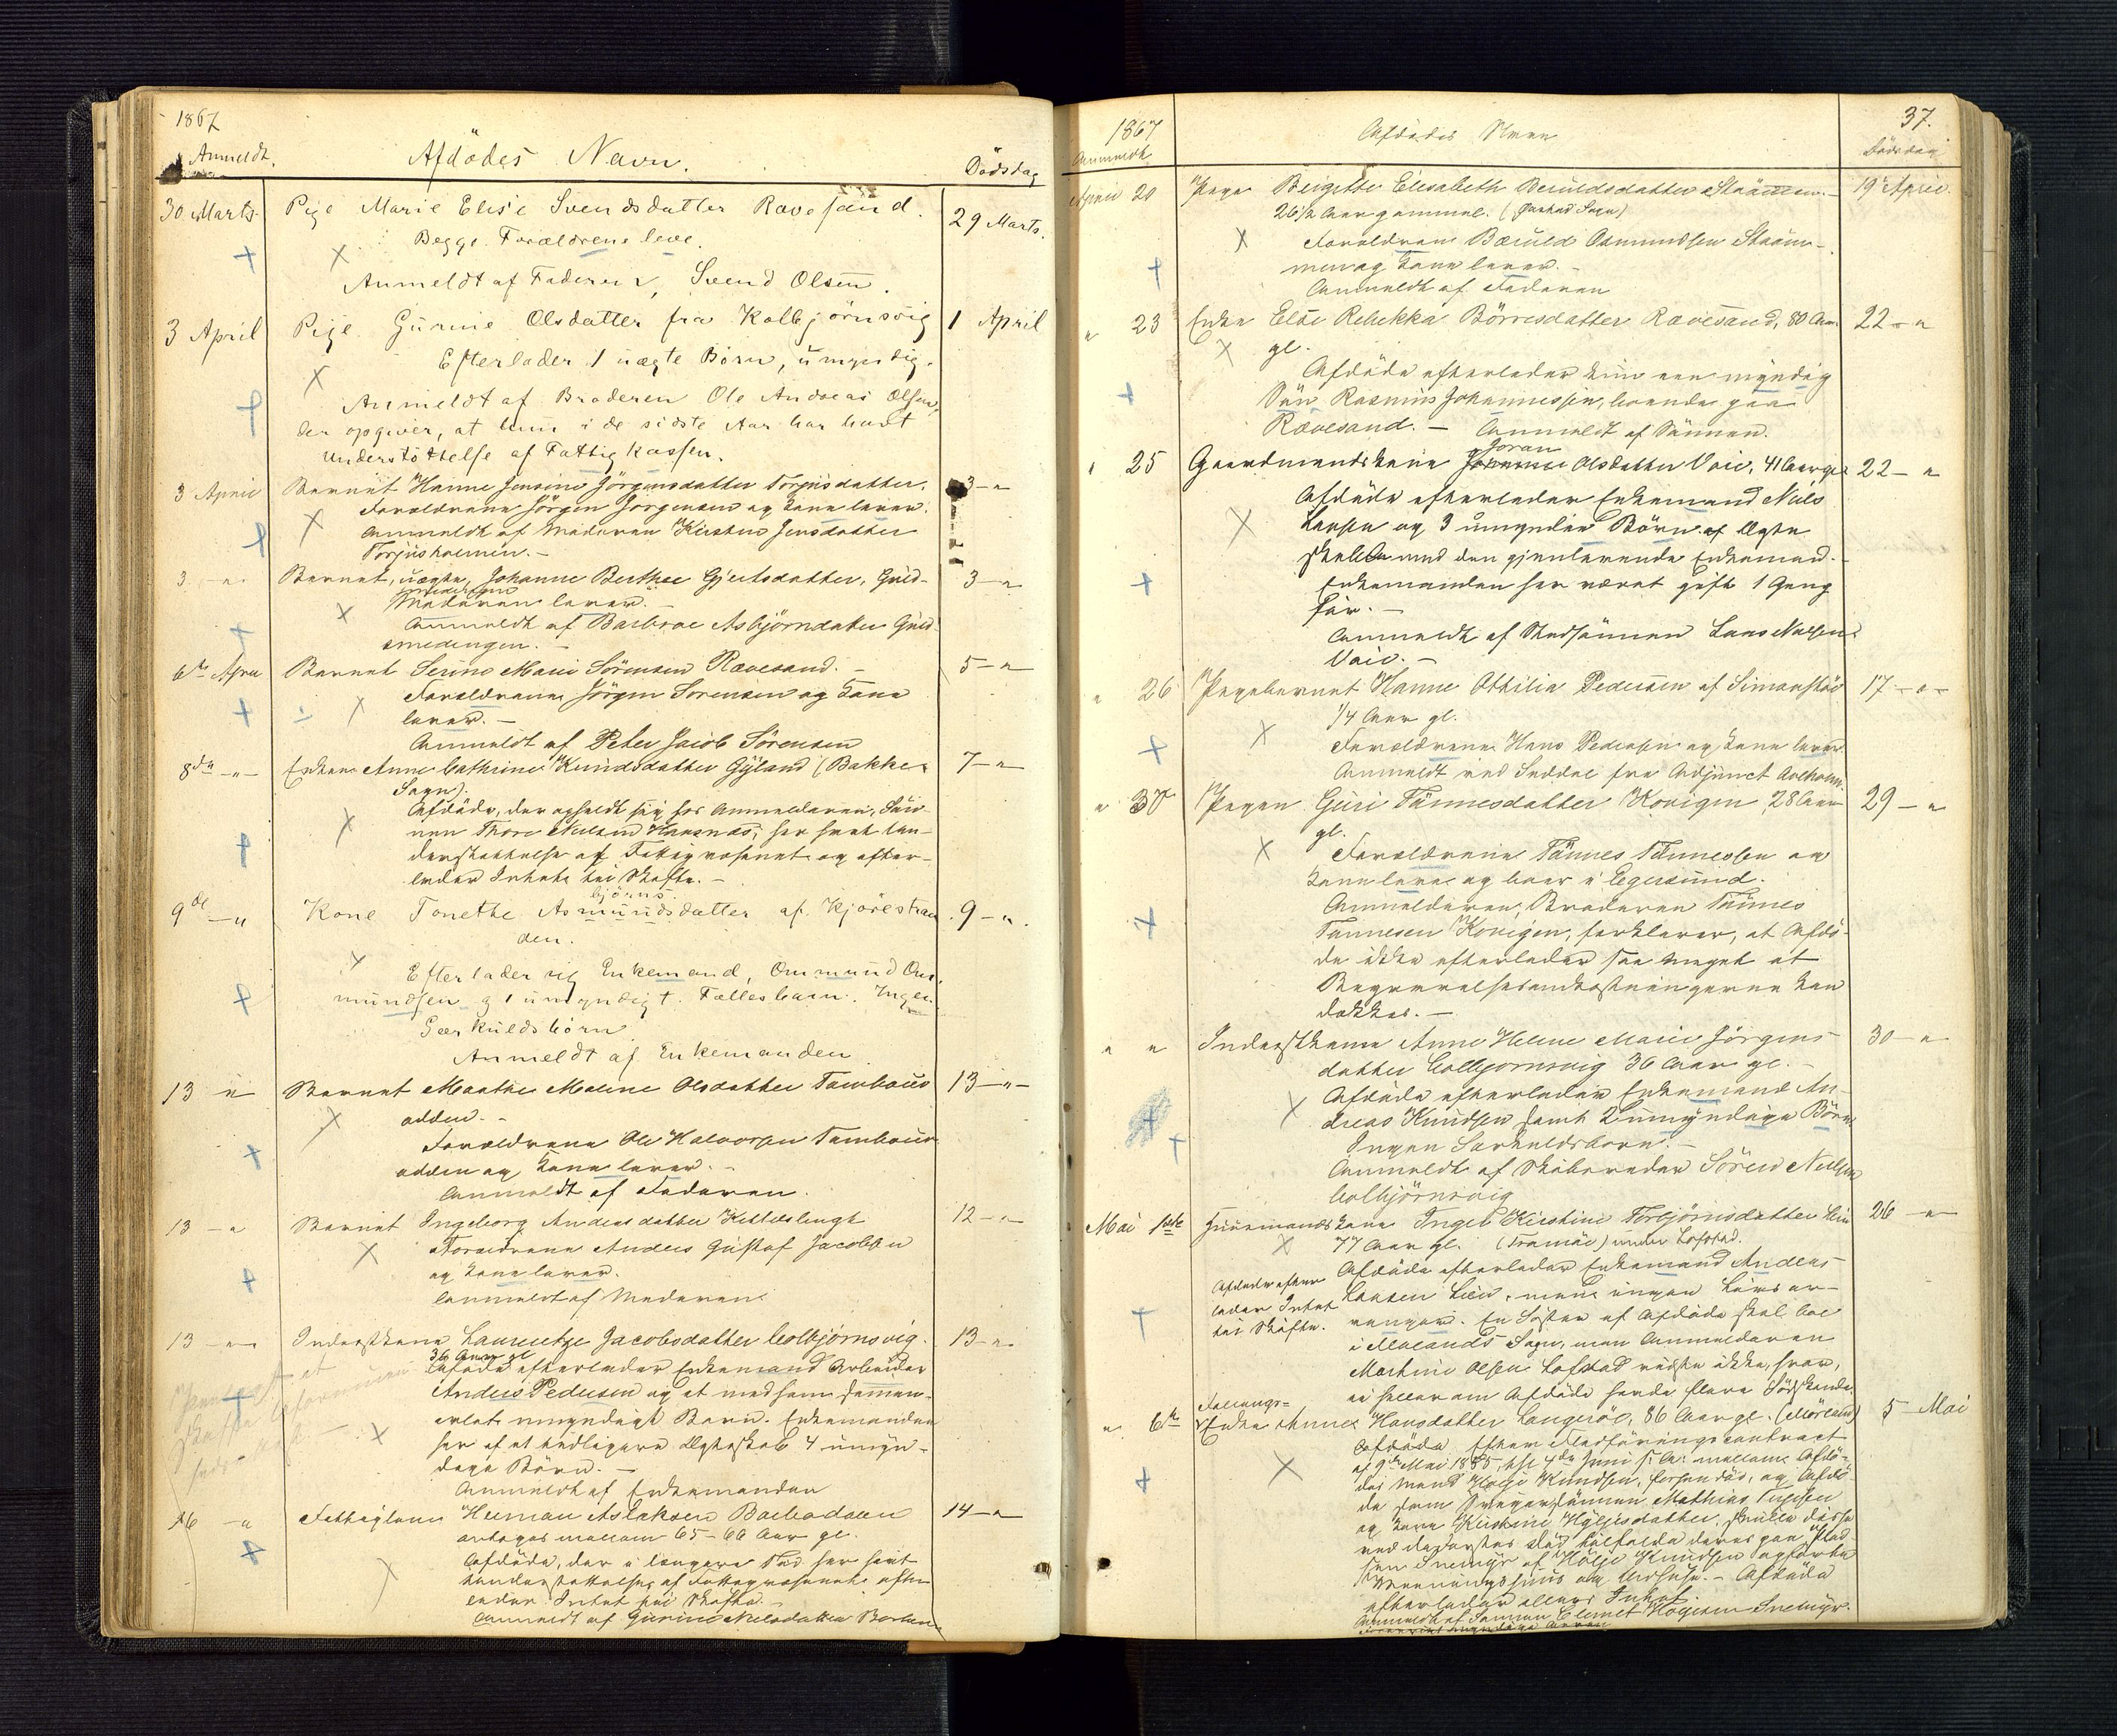 1867
Anmeldt. Afdödes Navn. Dödsdag
30 Marts. Pige Marie Elise Svendsdatter Ravesand. 29 Marts.
Begge Forældrene leve.
Anmeldt af Faderen, Svend Olsen.
3 April Pige Gurine Olsdatter fra Kolbjörnsvig 1 April
Efterlader 1 uægte Börn, umyndig.
Anmeldt af Broderen Ole Andreas Olsen,
der opgiver, at hun i de sidste Aar har havt
Understöttelse af Fattigkassen.
3 April Barnet Hanne Jensine Jörgensdatter Torjusdatter. 3 - "
Forældrene Jörgen Jörgensen og Kone lever.
Anmeldt af Moderen Kirsten Jensdatter
Torjusholmen. -
3 - " Barnet, uægte, Johanne Berthee Gjertsdatter, Guld- 3 - "
smedengen
Moderen lever. -
Anmeldt af Barbroe Asbjörndatter Guld-
smedengen. -
6te April Barnet Serine Marie Sörensen Ravesand. - 5 - "
Forældrene Jörgen Sorensen og Kone
lever. -
Anmeldt af Peter Jacob Sörensen
8de - " - Enken Anne Cathrine Knudsdatter Gyland (Bakke 7 - "
Sogn).
Afdöde, der opholdt sig hos Anmelderen, Sön-
nen Thore Nielsen, har havt Un-
derstöttelse af Fattigvæsenet og efter-
lader Intet til Skifte. -
9de - " Kone Tonethe Asmundsdatter af Kjörestran 9 - "
björns
den.
Efterlader sig Enkemand, Ommund Om-
mundsen og 1 umyndigt Fællesbarn. Ingen
Særkuldsbörn
Anmeldt af Enkemanden
13 " Barnet Marthe Maline Olsdatter Tambour 13 - " -
odden. -
Forældrene Ole Halvorsen Tambour
odden og Kone lever. -
Anmeldt af Faderen.
13 - " Barnet Ingeborg Andersdatter 12 - "
Forældrene Anders Gustaf Jacobsen
og Kone lever.
Anmeldt af Moderen.
13 - " - Inderstkone Laurentze Jacobsdatter Colbjörnsvig. 13 - "
36 Aar gl
Afdöde efterlader Enkemand Arbeider
Anders Pedersen og et med ham sammen-
avlet umyndigt Barn. Enkemanden
har af et tidligere Ægteskab 4 umyn-
dige Börn. -
Anmeldt af Enkemanden
16 - " Fattiglem Herman Aslaksen 14 - "
antages mellem 65-66 Aar gl.
Afdöde, der i længere Tid har havt
Understöttelse af Fattigvæsenet efter-
lader Intet til Skifte. -
Anmeldt af Gurine Nilsdatter
1867 Afdödes Navn 37.
Anmeldt Dödsdag
April 20 Pige Birgitte Elisabeth Beruldsdatter 19 April.
26 1/2 Aar gammel.
Forældrene Bæruld Osmundsen
men og Kone lever. -
Anmeldt af Faderen
" 23 Enke Else Rebekka Börresdatter Ravesand, 80 Aar 22 - "
gl.
Afdöde efterlader kun een myndig
Sön Rasmus Johannessen, boende paa
Ravesand. - Anmeldt af Sönnen.
Joran
" 25 Gaardmandskone Johanne Olsdatter Voie, 41 Aar gl 22 - "
Afdöde efterlader Enkemand Niels
Larsen og 3 umyndige Börn af Ægte
skabet med den gjenlevende Enkemand. -
Enkemanden har været gift 1 Gang
för. -
Anmeldt af Stedsönnen Lars Nielsen
Voie. -
" 26 Pigebarnet Hanne Othilia Pedersen af 17 - " -
1/4 Aar gl.
Forældrene Hans Pedersen og Kone lever
Anmeldt ved Seddel fra Adjunct
" 30 Pigen Guri Tönnesdatter Konigen 28 Aar 29 - "
gl.
Forældrene Tönnes Tönnessen og
Kone leve og boer i Egersund.
Anmelderen, Broderen Tönnes
Tönnesen Konigen, forklarer, at Afdö-
de ikke efterlader saa meget at
Begravelsesomkostningerne kan
dækkes. -
" " Inderstkone Anne Helene Marie Jörgens- 30 - "
datter Colbjornsvig 36 Aar gl. -
Afdöde efterlader Enkemand An-
dreas Knudsen samt 2 umyndige Börn
Ingen Særkuldsbörn. -
Anmeldt af Skibsreder Sören Nielsen
Colbjörnsvig
Mai 1ste Huusmandskone Inger Kirstine Torbjörnsdatter Lien 26 - "
77 Aar gl. (Tromöe) under Lofstad.
Afdöde efterlader Enkemand Anders
Larsen Lien, men ingen Livsar-
Afdöde efter
lader Intet
til Skifte.
vinger. En Söster af Afdöde skal boe
i Sogn, men Anmelderen
Martine Olsen Lofstad vidste ikke, hvor,
ei heller om Afdöde havde flere Södskende.
Föderaads-
" 6te Enke Anne Hansdatter Langeröe, 86 Aar gl. 5 Mai
Afdöde Efter Contract
af 9de Mai 1855, 4de Juni s. A. mellem Afdö-
des Mand Hölje Knudsen, og Afdö-
de som Svigersönnen Mathias
og Kone Kirstine Höljesdatter, skulle disse
ved Afdödes Död tilfalde deres paa Plad-
sen Snemyr af Hölje Knudsen opförte
Vaaningshuus og Udhuse. - Afdöde
efterlader ellers Intet.
Anmeldt af Sönnen Clemet Höljesen Snemyr.